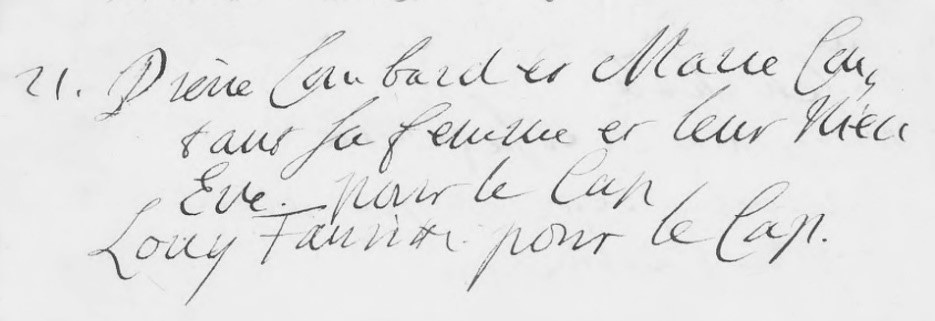 21. Pierre Lombard et Marie Cou,
tans sa femme et leur Niece
Eve. pour le Cap
Louy Fauritte. pour le Cap.